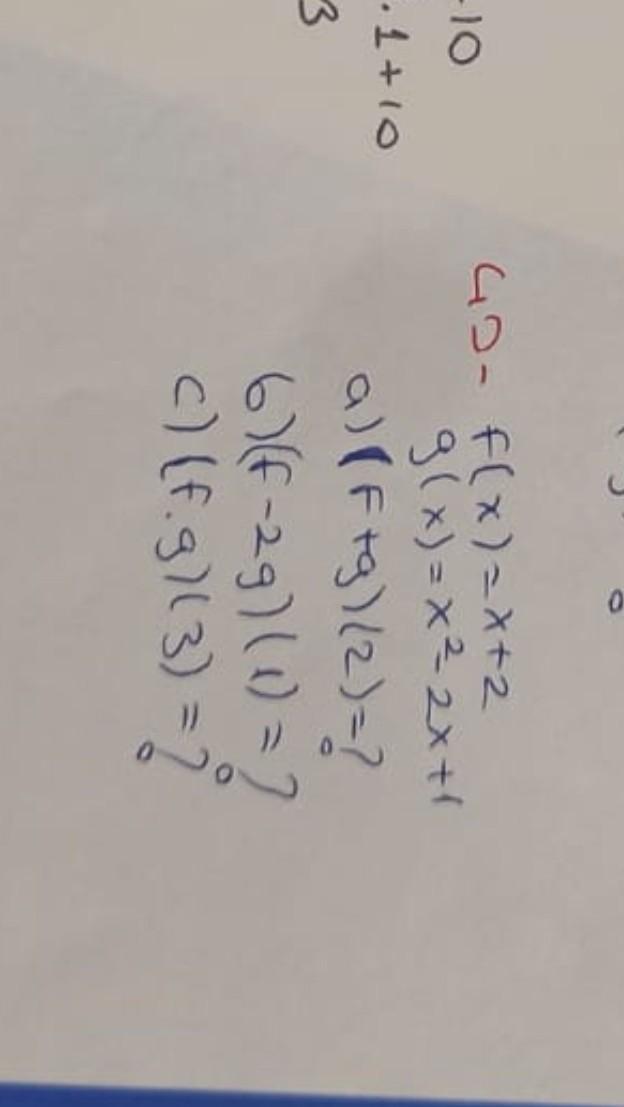 -10
.1+10
3
40- f(x)=x+2
g(x)=x²-2x+1
a)(f+g)(2)=?
b)(f-2g)(1)=?
c)(f.g)(3)=?